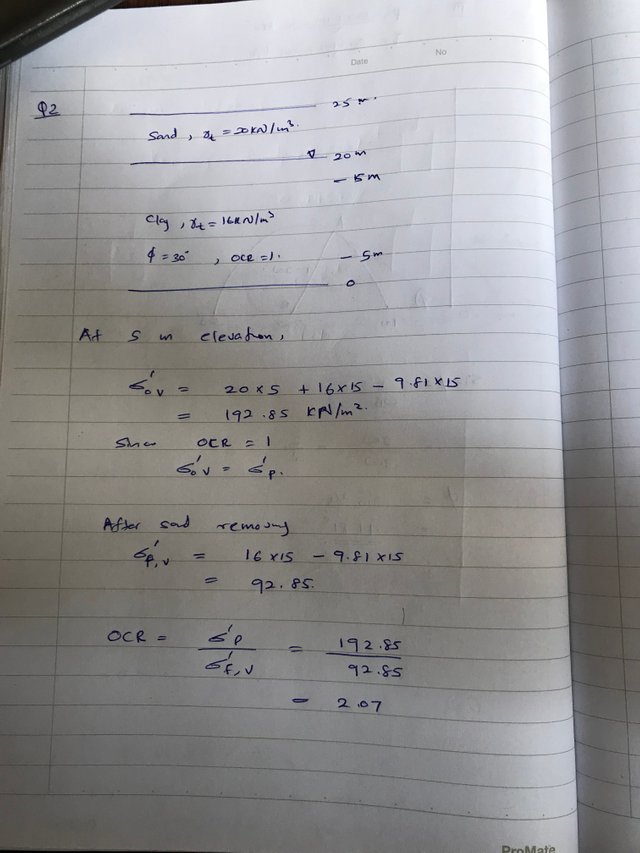 Date No
Q2
25 m.
Sand, γt = 20 KN/m³.
∇ 20 m
- 15 m
Clay, γt = 16 KN/m³
ϕ = 30°, OCR = 1. - 5m
0
At 5 m elevation,
σ'o,v = 20 × 5 + 16 × 15 - 9.81 × 15
= 192.85 KN/m².
Since OCR = 1
σ'o,v = σ'p.
After sad removing
σ'f,v = 16 × 15 - 9.81 × 15
= 92.85.
OCR = σ'p / σ'f,v = 192.85 / 92.85
= 2.07
ProMate